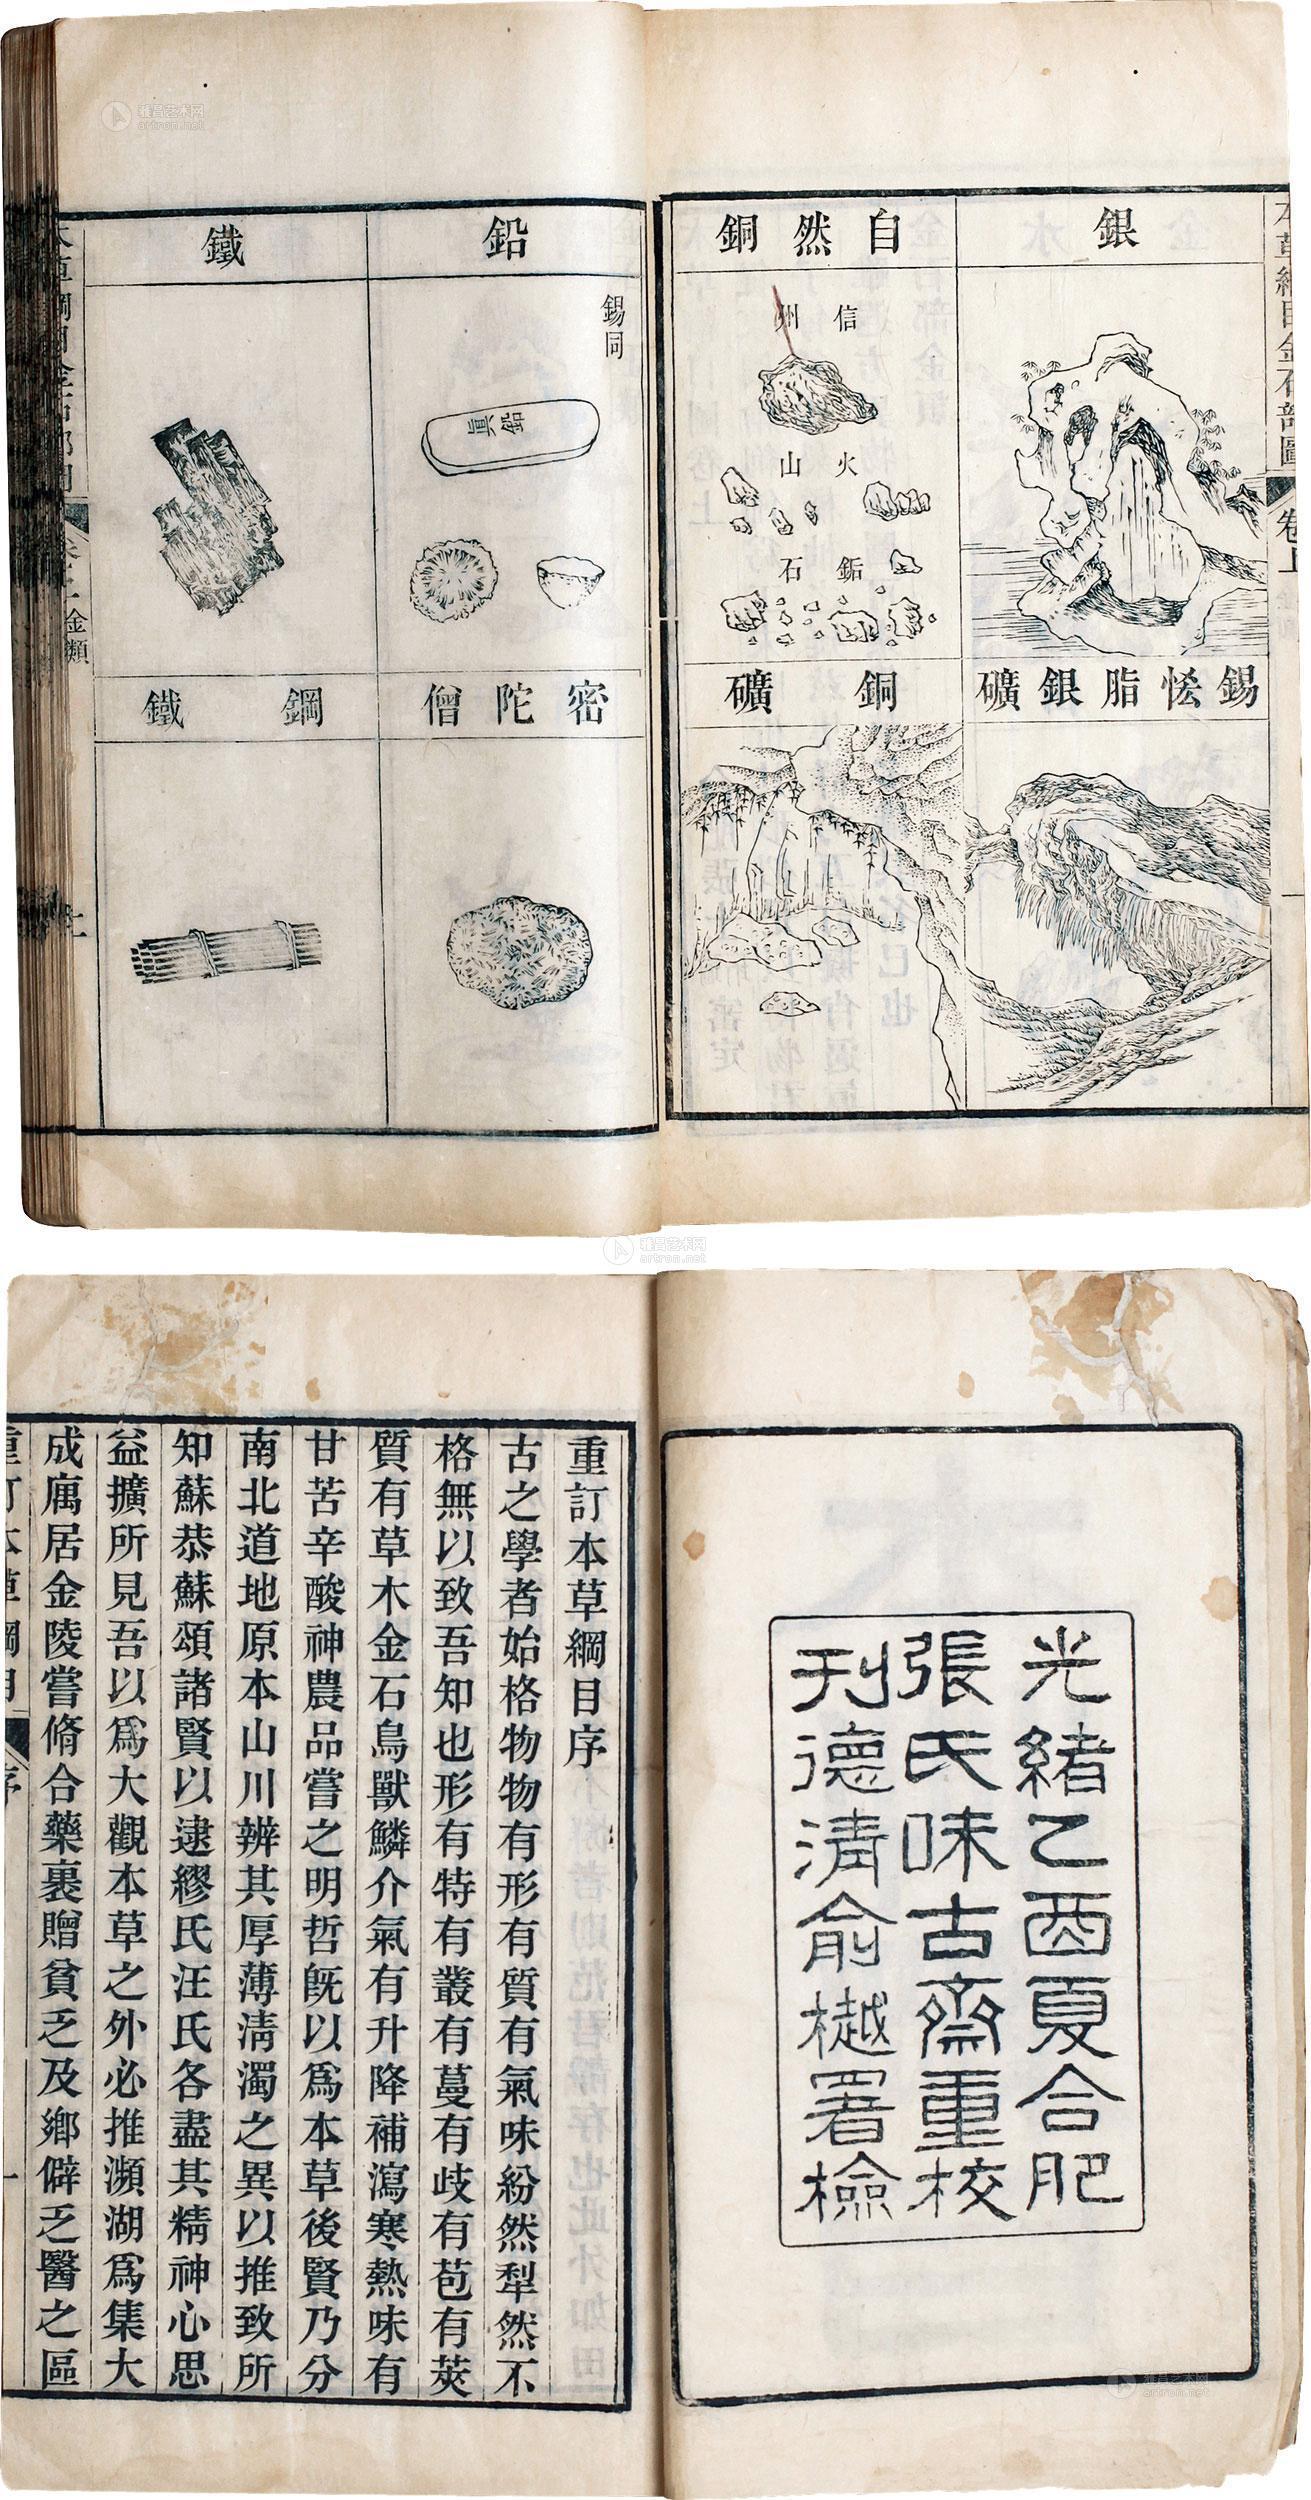 雅昌艺术网
artron.net
銀
自然銅
信州
火山
鉐石
錫恡脂銀礦
銅礦
本草綱目金石部圖
卷上
鉛
錫同
眞鉛
鐵
密陀僧
鋼鐵
金類
雅昌艺术网
artron.net
光緒乙酉夏合肥
張氏味古齋重校
刊德清俞樾署檢
重訂本草綱目序
古之學者始格物物有形有質有氣味紛然犁然不
格無以致吾知也形有特有叢有蔓有歧有苞有莢
質有草木金石鳥獸鱗介氣有升降補瀉寒熱味有
甘苦辛酸神農品嘗之明哲既以爲本草後賢乃分
南北道地原本山川辨其厚薄淸濁之異以推致所
知蘇恭蘇頌諸賢以逮繆氏汪氏各盡其精神心思
益擴所見吾以爲大觀本草之外必推瀕湖爲集大
成厲居金陵嘗脩合藥裹贈貧乏及鄉僻乏醫之區
重訂本草綱目
序
一
雅昌艺术网
artron.net